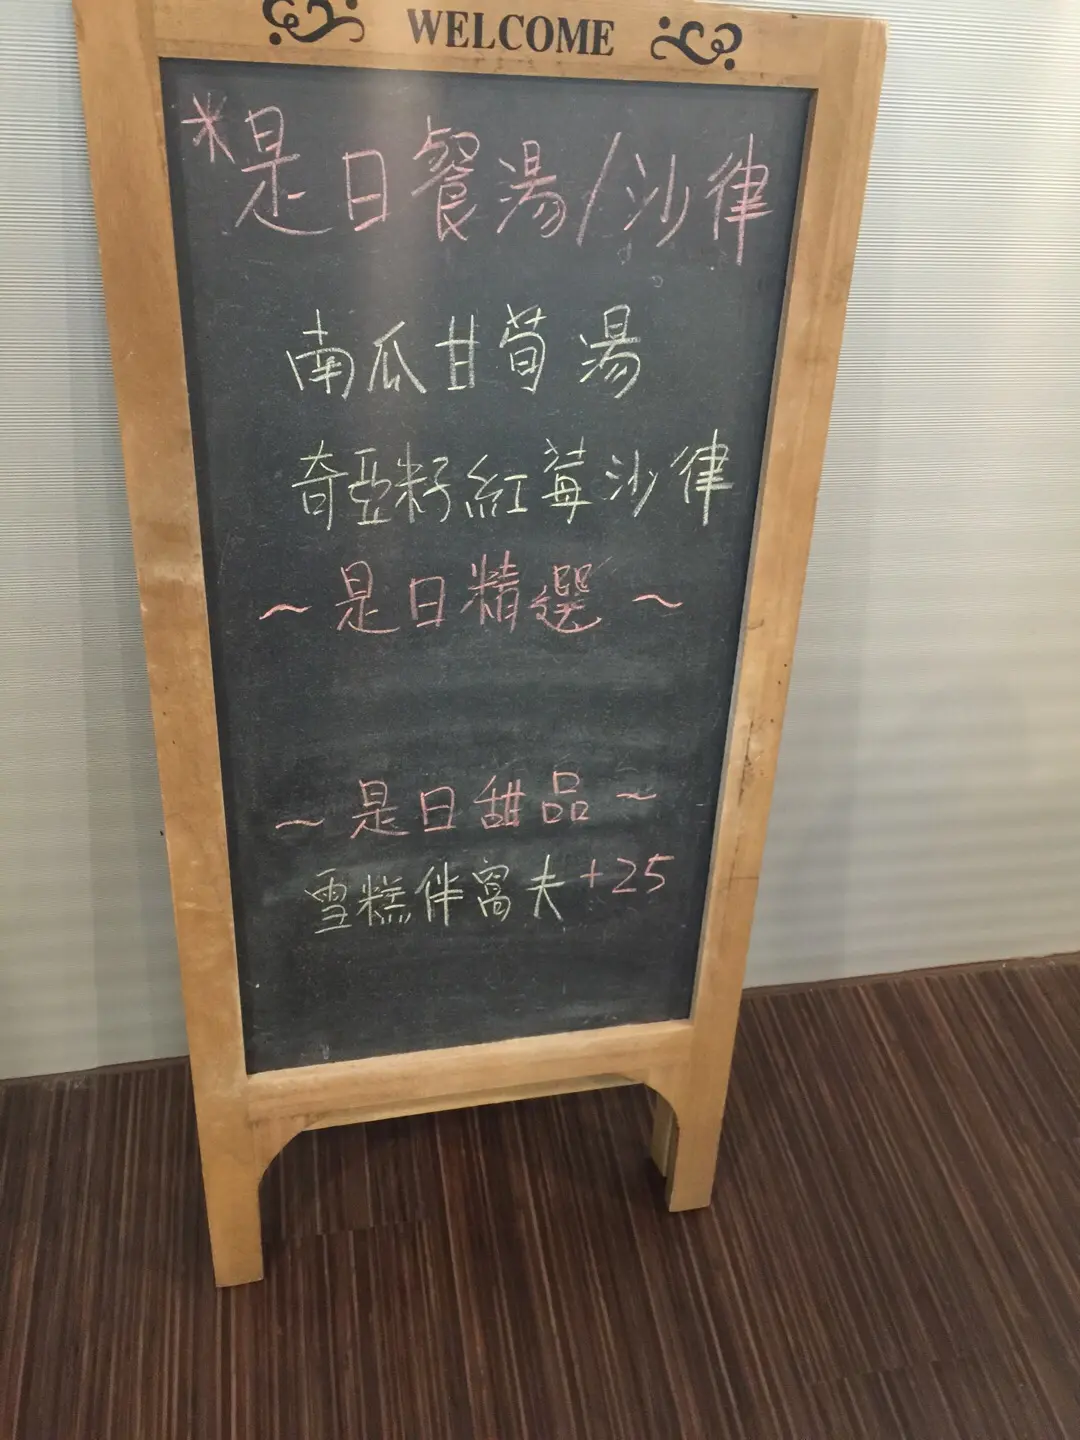 WELCOME
*是日餐湯/沙律
南瓜甘荀湯
奇亞籽紅莓沙律
~是日精選~
~是日甜品~
雪糕伴窩夫+25